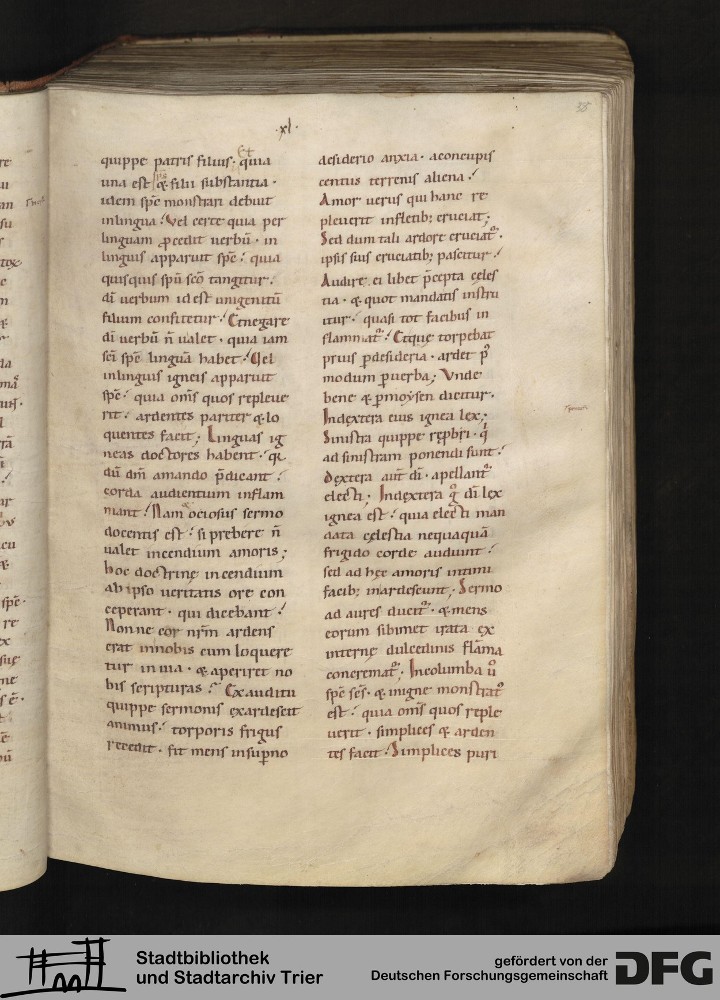 38
·xl·
quippe patris filius· quia
una est & filii substantia·
idem spē monstrari debuit
inlingua· Vel certe quia per
linguam ꝓcedit uerbū· in
linguis apparuit spē· quia
quisquis spū scō tangitur·
dī uerbum id est unigenitū
filium confitetur· Et negare
dī uerbū n̄ ualet· quia iam
scī spē linguā habet· Vel
inlinguis igneis apparuit
spē· quia om̄s quos repleue
rit· ardentes pariter & lo
quentes facit; Linguas ig
neas doctores habent· 
dū dm̄ amando p̄dicant·
corda audientium inflam
mant· Nam ociosus sermo
docentis est· si prebere n̄
ualet incendium amoris;
hoc doctrinę incendium
ab ipso ueritatis ore con
ceperant· qui dicebant·
Nonne cor nr̄m ardens
erat innobis cum loquere
tur in uia· & aperiret no
bis scripturas· Exauditu
quippe sermonis exardescit
animus· torporis frigus
recedit· fit mens insuꝑno
desiderio anxia· aconcupis
centiis terrenis aliena·
Amor uerus qui hanc re
pleuerit infletib; cruciat;
Sed dum tali ardore cruciat᷑·
ipsis suis cruciatib; pascitur·
Audire ei libet p̄cepta cęles
tia· & quot mandatis instru
itur· quasi tot facibus in
flammat᷑· Etque torpebat
prius ꝑdesideria· ardet p̄
modum ꝑuerba; Vnde
bene & ꝑmoysen dicitur·
Indextera eius ignea lex;
Sinistra quippe reꝓbri· 
ad sinistram ponendi sunt·
dextera aut̄ dī· apellant᷑
electi· Indextera g̊ dī lex
ignea est· quia electi man
data celestia nequaquā
frigido corde audiunt·
sed ad hęc amoris intimi
facib; inardescunt· Sermo
ad aures ducit᷑· & mens
eorum sibimet irata ex
internę dulcedinis flāma
concremat᷑· Incolumba ů
spē scs̄· & inigne monstrat᷑
est· quia om̄s quos reple
uerit· simplices & arden
tes facit· Simplices puri
Stadtbibliothek
und Stadtarchiv Trier
gefördert von der
Deutschen Forschungsgemeinschaft
DFG